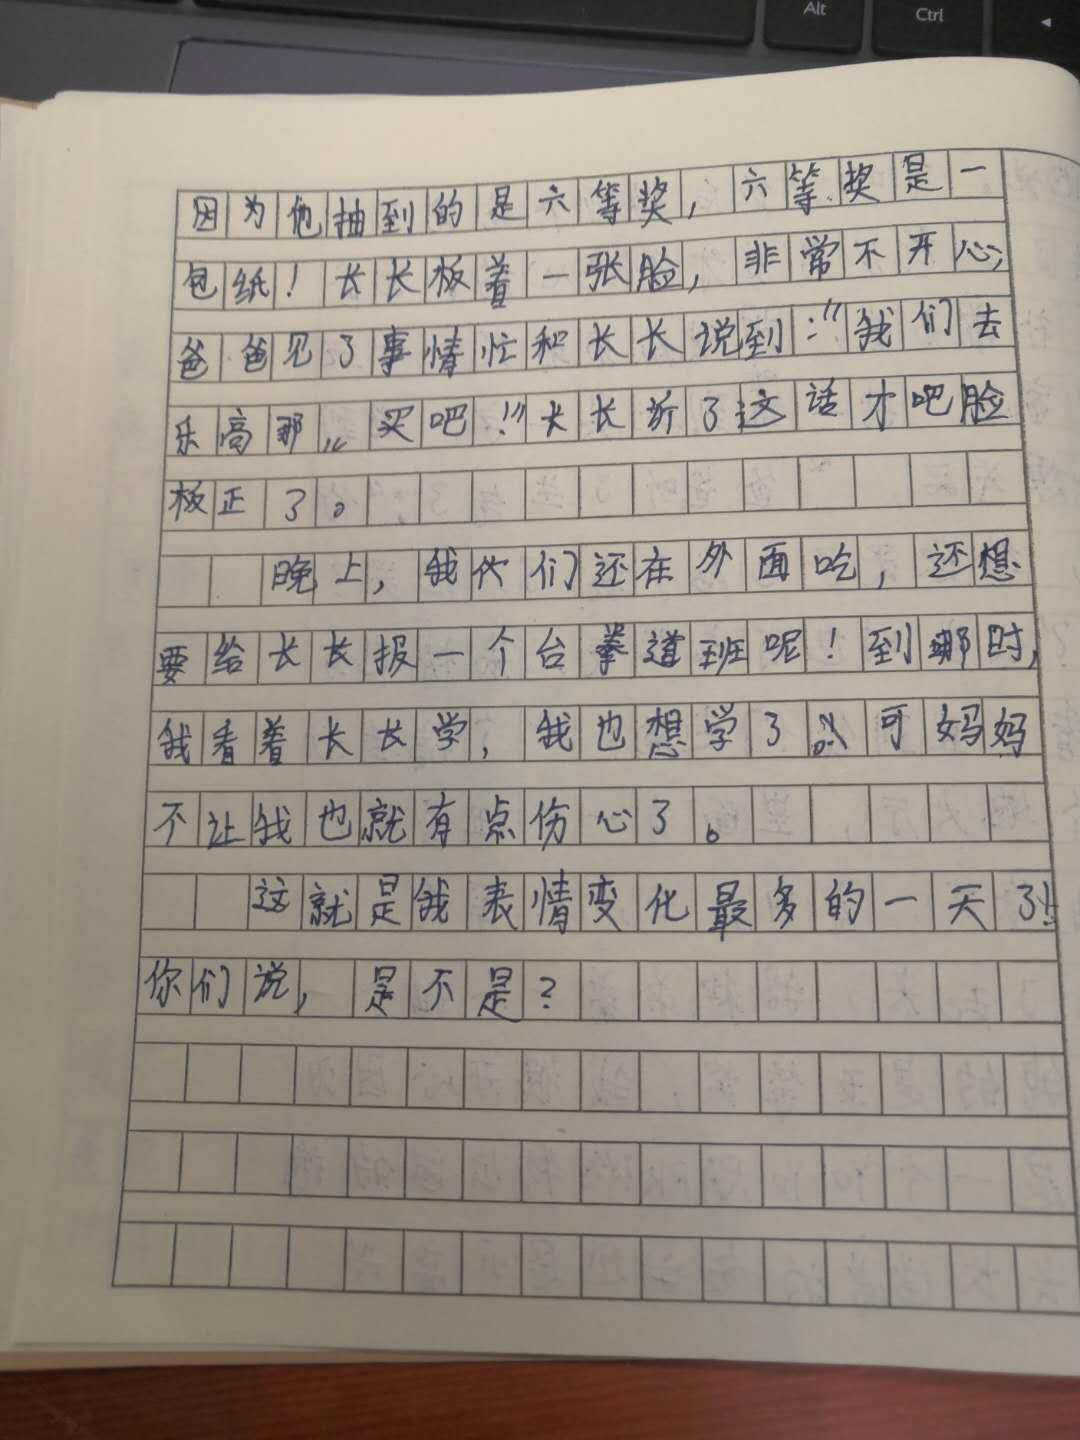 Alt
Ctrl
因为他抽到的是六等奖，六等奖是一
包纸！长长板着一张脸，非常不开心；
爸爸见了事情忙和长长说到：“我们去
乐高那，，买吧！”长长听了这话才吧脸
板正了。
晚上，我他们还在外面吃，还想
要给长长报一个台拳道班呢！到那时，
我看着长长学，我也想学了。可妈妈
不让我也就有点伤心了。
这就是我表情变化最多的一天了！
你们说，是不是？